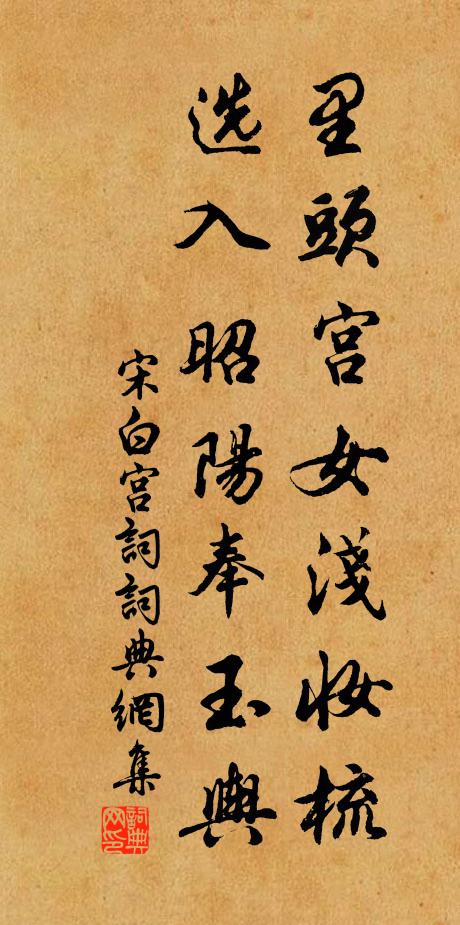 里頭宫女淺妝梳
選入昭陽奉玉輿
宋白宫詞詞典網集
詞典網印